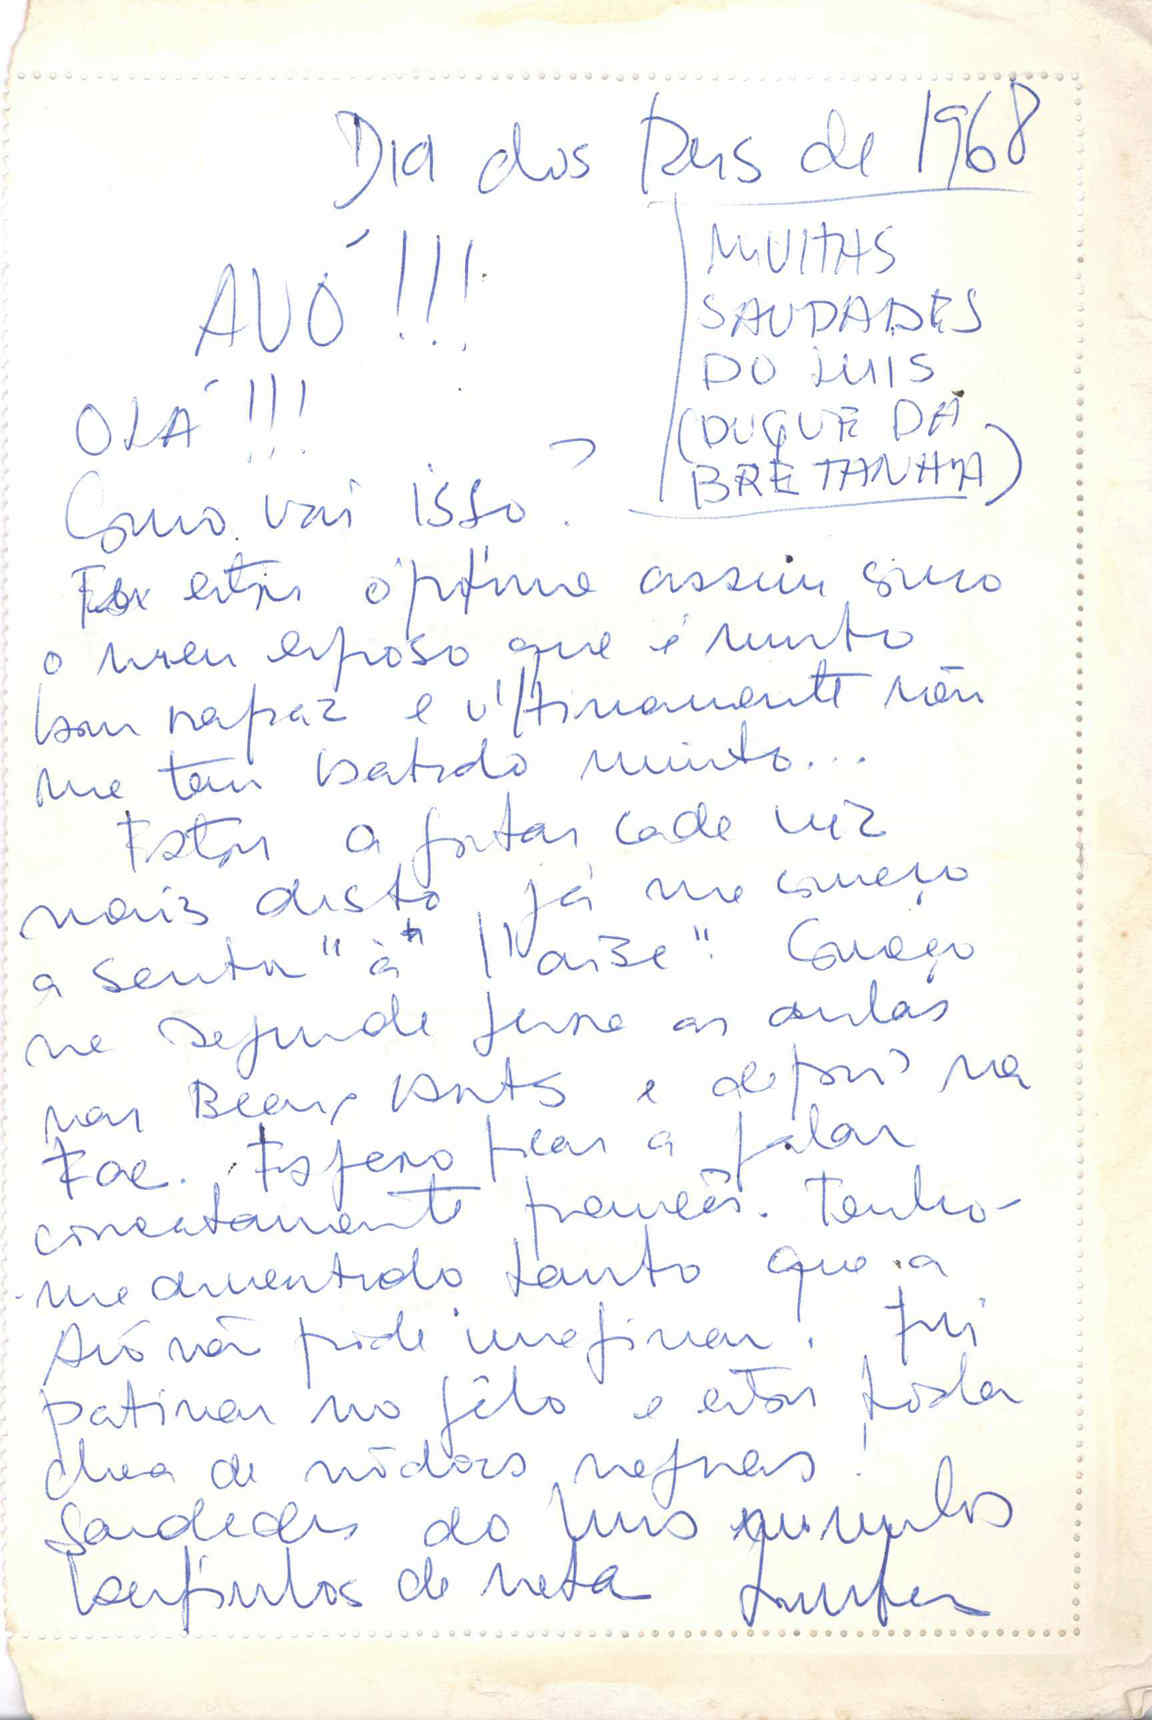 Dia dos Reis de 1968
MUITAS
SAUDADES
DO LUIS
(DUQUE DA
BRETANHA)
AVÓ!!!
OLÁ!!!
Como vai isso?
Eu estou óptima assim como
o meu esposo que é muito
bom rapaz e últimamente não
me tem batido muito...
Estou a gostar cada vez
mais disto já me começo
a sentir "à l'aise". Começo
na segunda feira as aulas
nas Beaux Arts e depois na
Fac. Espero ficar a falar
correctamente francês. Tenho-
-me divertido tanto que a
Avó não pode imaginar. Fui
patinar no gêlo e estou tôda
cheia de nódoas negras!
Saudades do Luis mil
beijinhos da neta